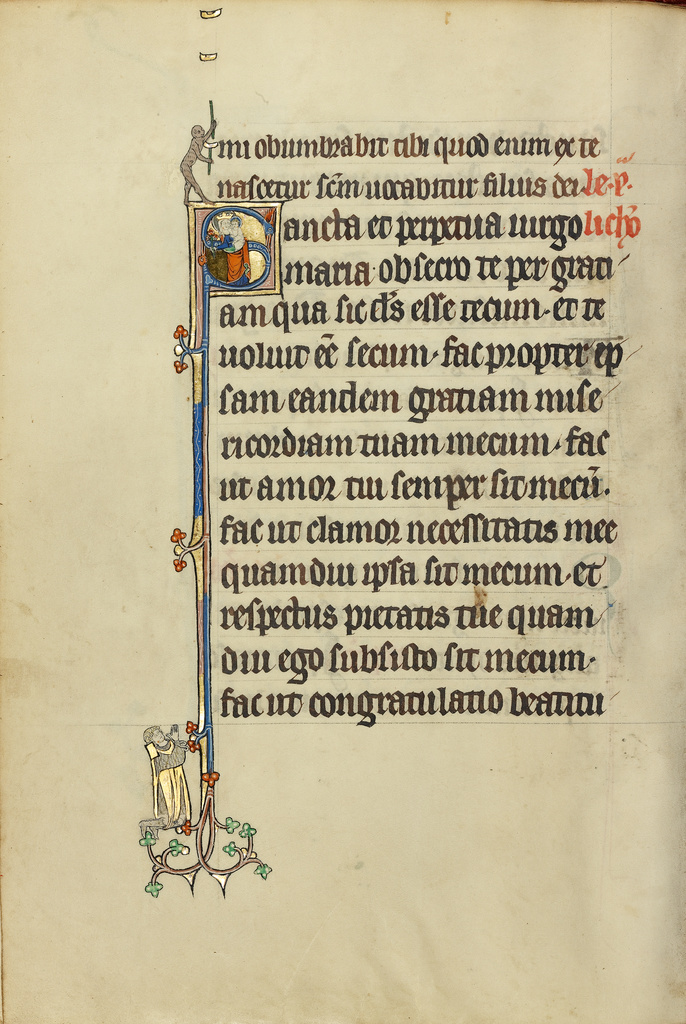 mi obumbrabit tibi quod enim ex te
nascetur sc̄m uocabitur filius dei
Sancta et perpetua uirgo
maria obsecro te per grati
am qua sic d̄s esse tecum et te
uoluit ee̅ secum fac propter ip
sam eandem gratiam mise
ricordiam tuam mecum fac
ut amor tui semper sit mecū.
fac ut clamor necessitatis mee
quamdiu ipsa sit mecum et
respectus pietatis tue quam
diu ego subsisto sit mecum
fac ut congratulatio beatitu